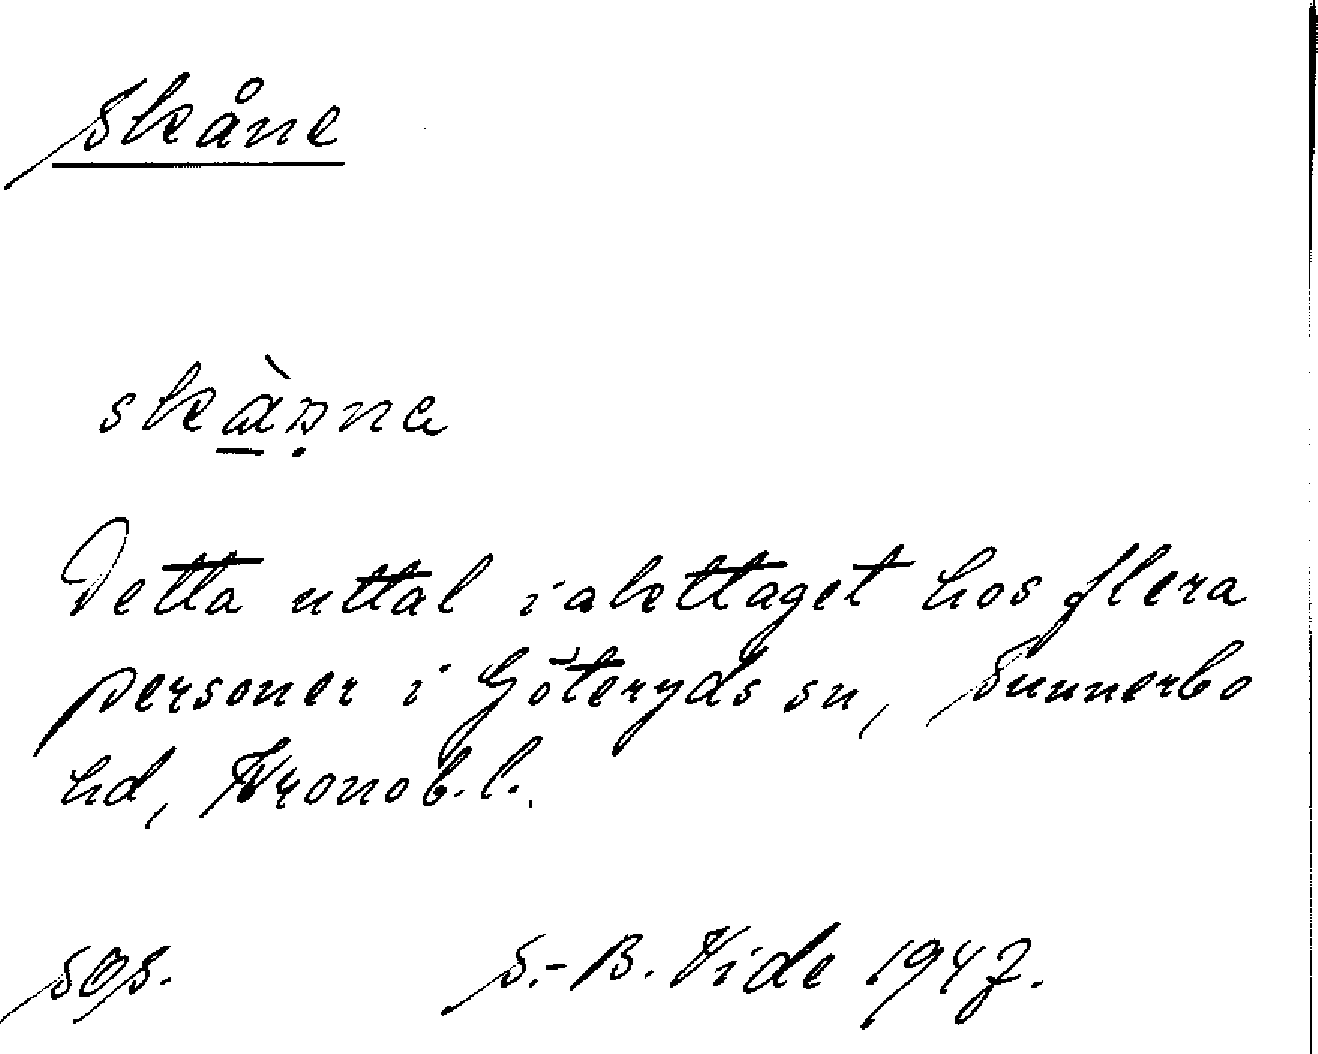 Skåne
skànna
Detta uttal iakttaget hos flera
personer i Göteryds sn, Sunnerbo
hd, Kronob. l.
SOS.
S.-B. Vide 1947.